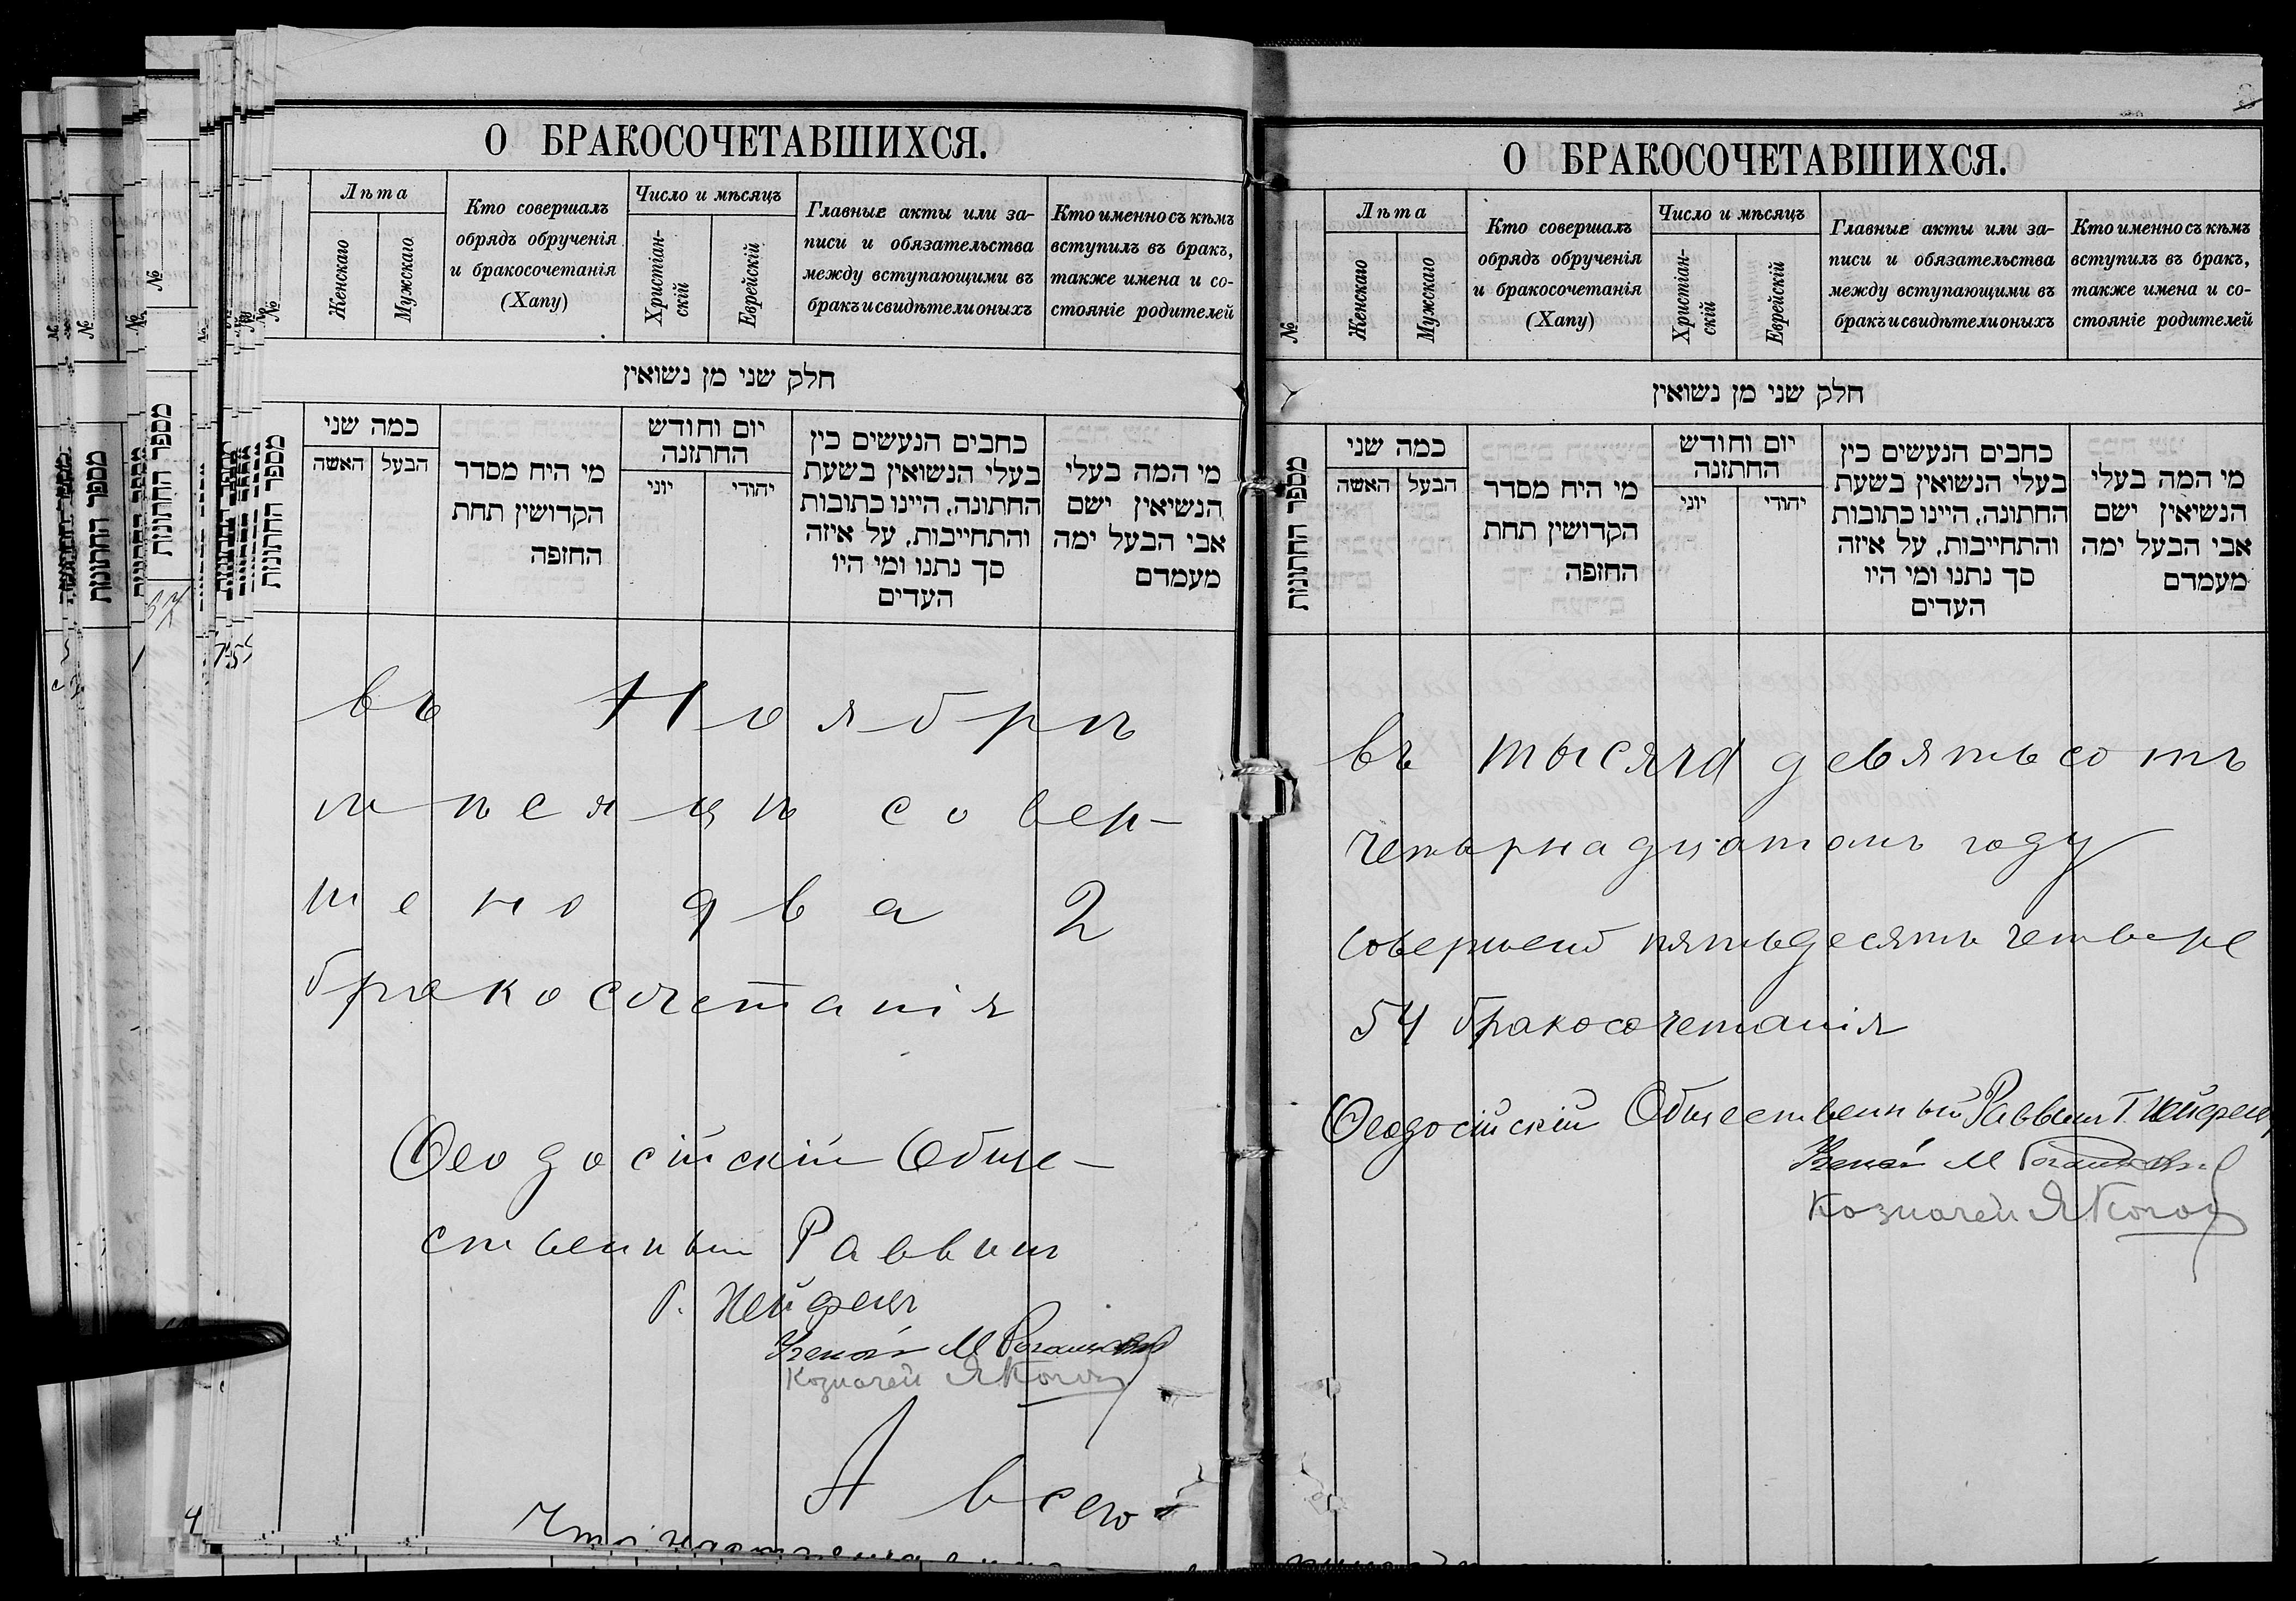 О БРАКОСОЧЕТАВШИХСЯ.
№
Лѣта
Женскаго
Мужскаго
Кто совершалъ
обрядъ обрученія
и бракосочетанія
(Хапу)
Число и мѣсяцъ
Христіан-
скій
Еврейскій
Главные акты или за-
писи и обязательства
между вступающими въ
бракъ и свидѣтели оныхъ
Кто именно съ кѣмъ
вступилъ въ бракъ,
также имена и со-
стояніе родителей
חלק שני מן נשואין
מספר החתונות
כמה שני
האשה
הבעל
מי היח מסדר
הקדושין תחת
החזפה
יום וחודש
החתזנה
יוני
יהודי
כחבים הנעשים כין
בעלי הנשואין בשעת
החתונה, היינו כתובות
והתחייבות, על איזה
סך נתנו ומי היו
העדים
מי המה בעלי
הנשיאין ישם
אבי הבעל ימה
מעמדם
въ Ноябрѣ
мѣсяцѣ совер-
шено два 2
бракосочетанія
Ѳеодосійскій Обще-
ственный Раввинъ
Г. Нейфецъ
М
Козначей Я Коген
А всего
Что
О БРАКОСОЧЕТАВШИХСЯ.
№
Лѣта
Женскаго
Мужскаго
Кто совершалъ
обрядъ обрученія
и бракосочетанія
(Хапу)
Число и мѣсяцъ
Христіан-
скій
Еврейскій
Главные акты или за-
писи и обязательства
между вступающими въ
бракъ и свидѣтели оныхъ
Кто именно съ кѣмъ
вступилъ въ бракъ,
также имена и со-
стояніе родителей
חלק שני מן נשואין
מספר החתונות
כמה שני
האשה
הבעל
מי היח מסדר
הקדושין תחת
החזפה
יום וחודש
החתזנה
יוני
יהודי
כחבים הנעשים כין
בעלי הנשואין בשעת
החתונה, היינו כתובות
והתחייבות, על איזה
סך נתנו ומי היו
העדים
מי המה בעלי
הנשיאין ישם
אבי הבעל ימה
מעמדם
въ тысяча девятьсотъ
четырнадцатомъ году
совершено пятьдесятъ четыре
54 бракосочетанія
Ѳеодосійскій Общественный Раввинъ Г. Нейфецъ
М
Козначей Я Коген